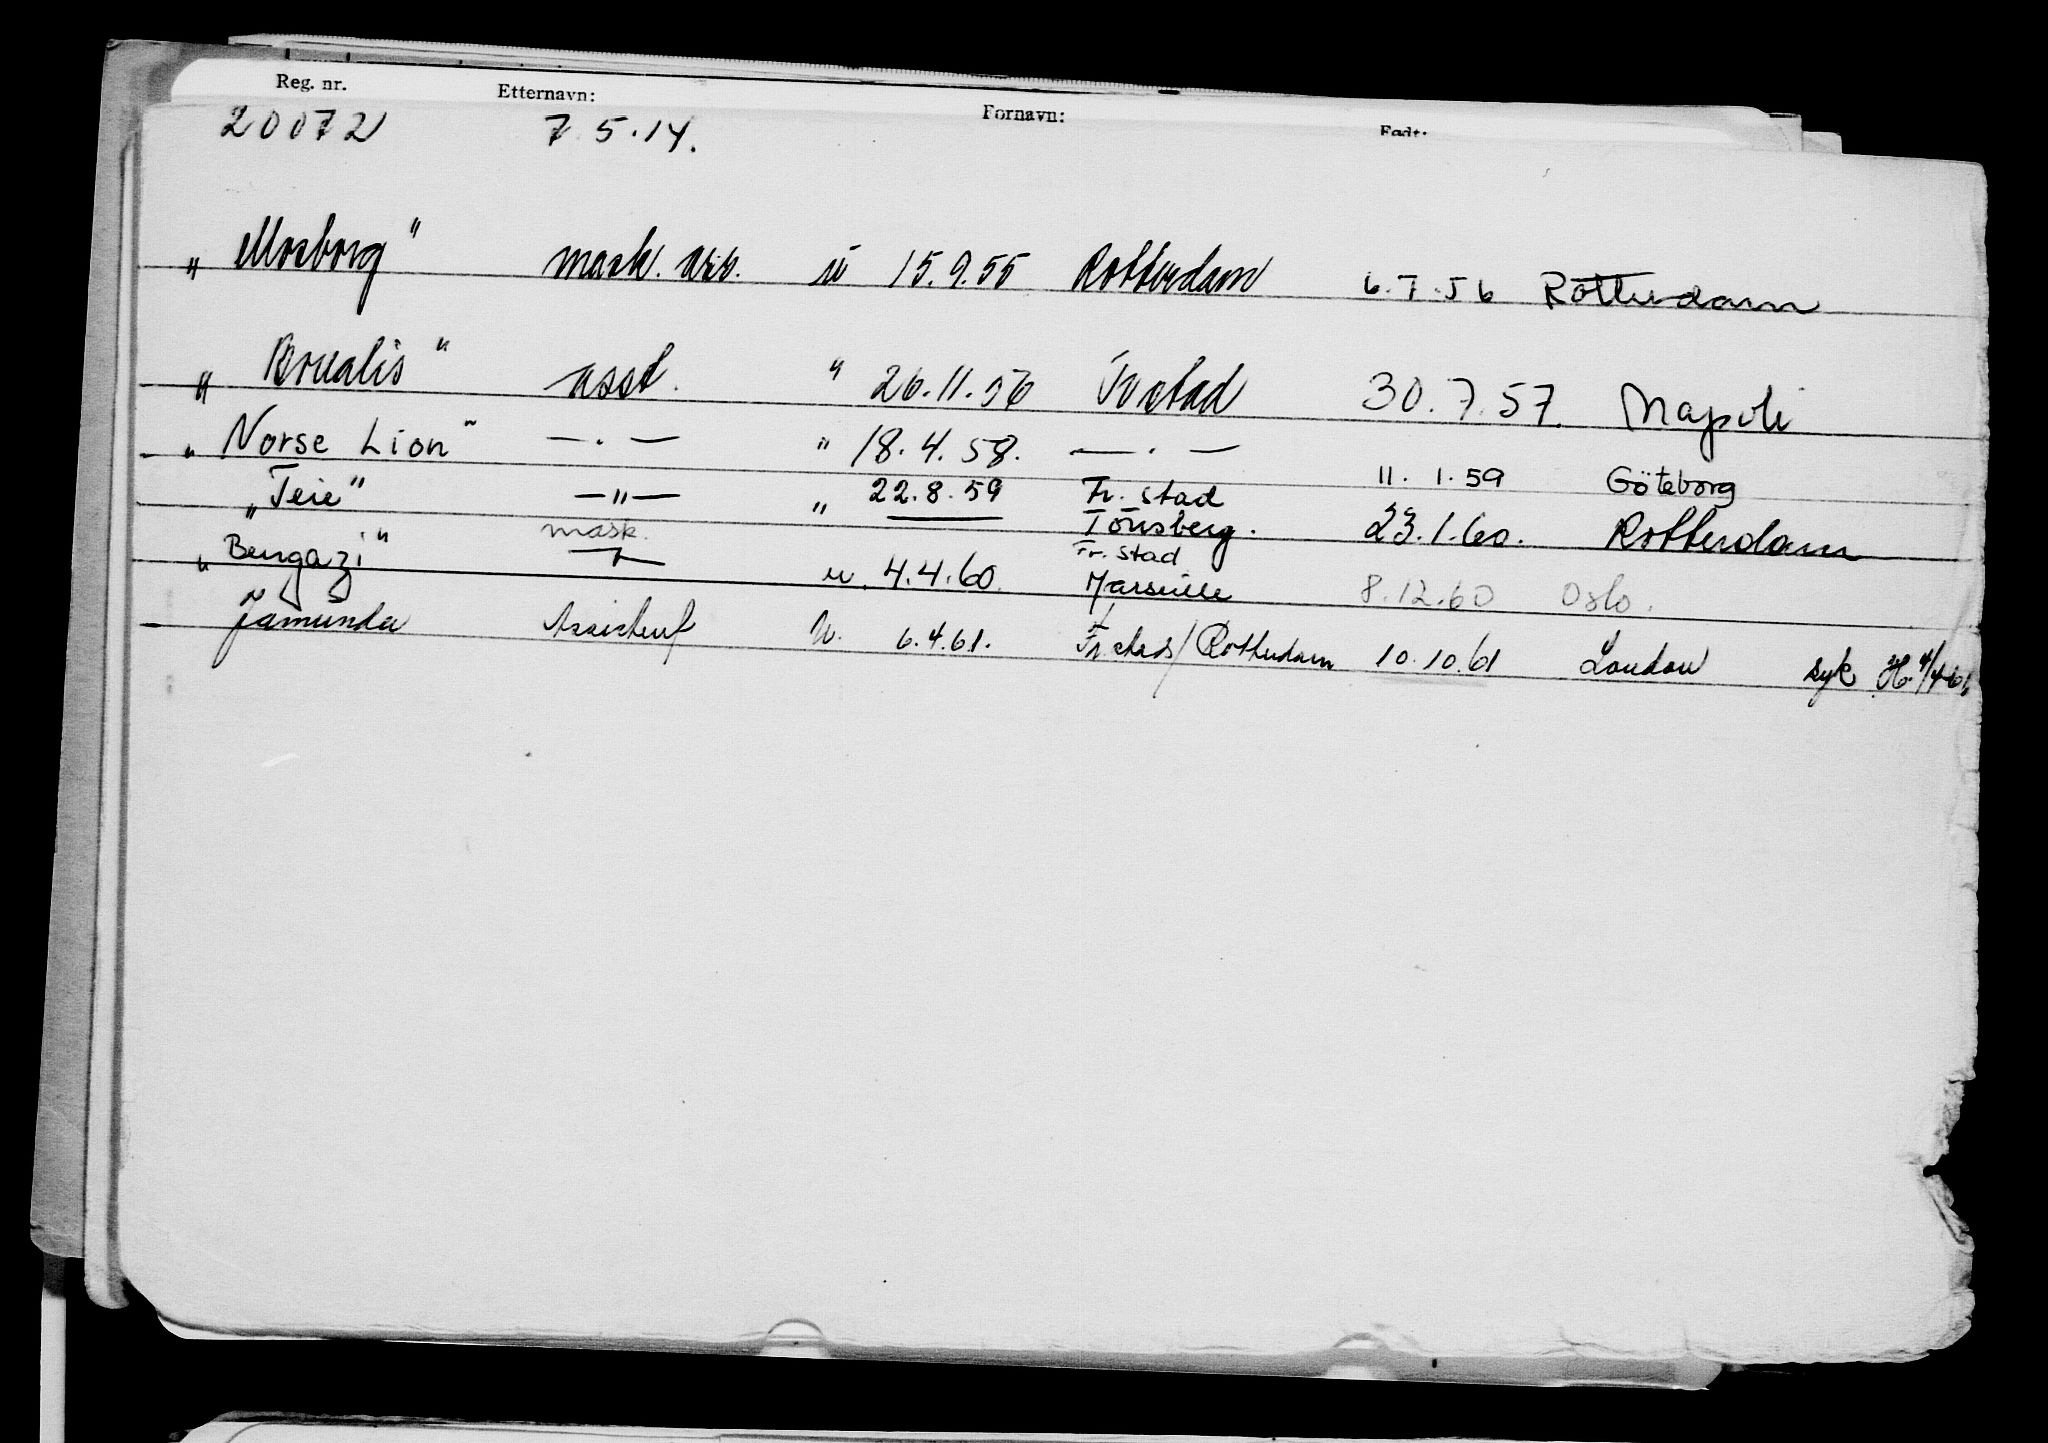 Reg. nr. Etternavn: Fornavn: Født:
20072 7.5.14.
„Mosborg" mask. ass. ü 15.9.55 Rotterdam 6.7.56 Rotterdam
„Borealis" asst. " 26.11.56 Frstad 30.7.57. Napoli
„Norse Lion" —.— " 18.4.58. —.— 11.1.59 Göteborg
„Teie" —"— " 22.8.59 Fr.stad Tönsberg. 23.1.60. Rotterdam
„Bengazi" mask. u. 4.4.60. Fr.stad Marseille 8.12.60 Oslo.
Jamunda Assistent u. 6.4.61. Fr.stad/Rotterdam 10.10.61 London syk